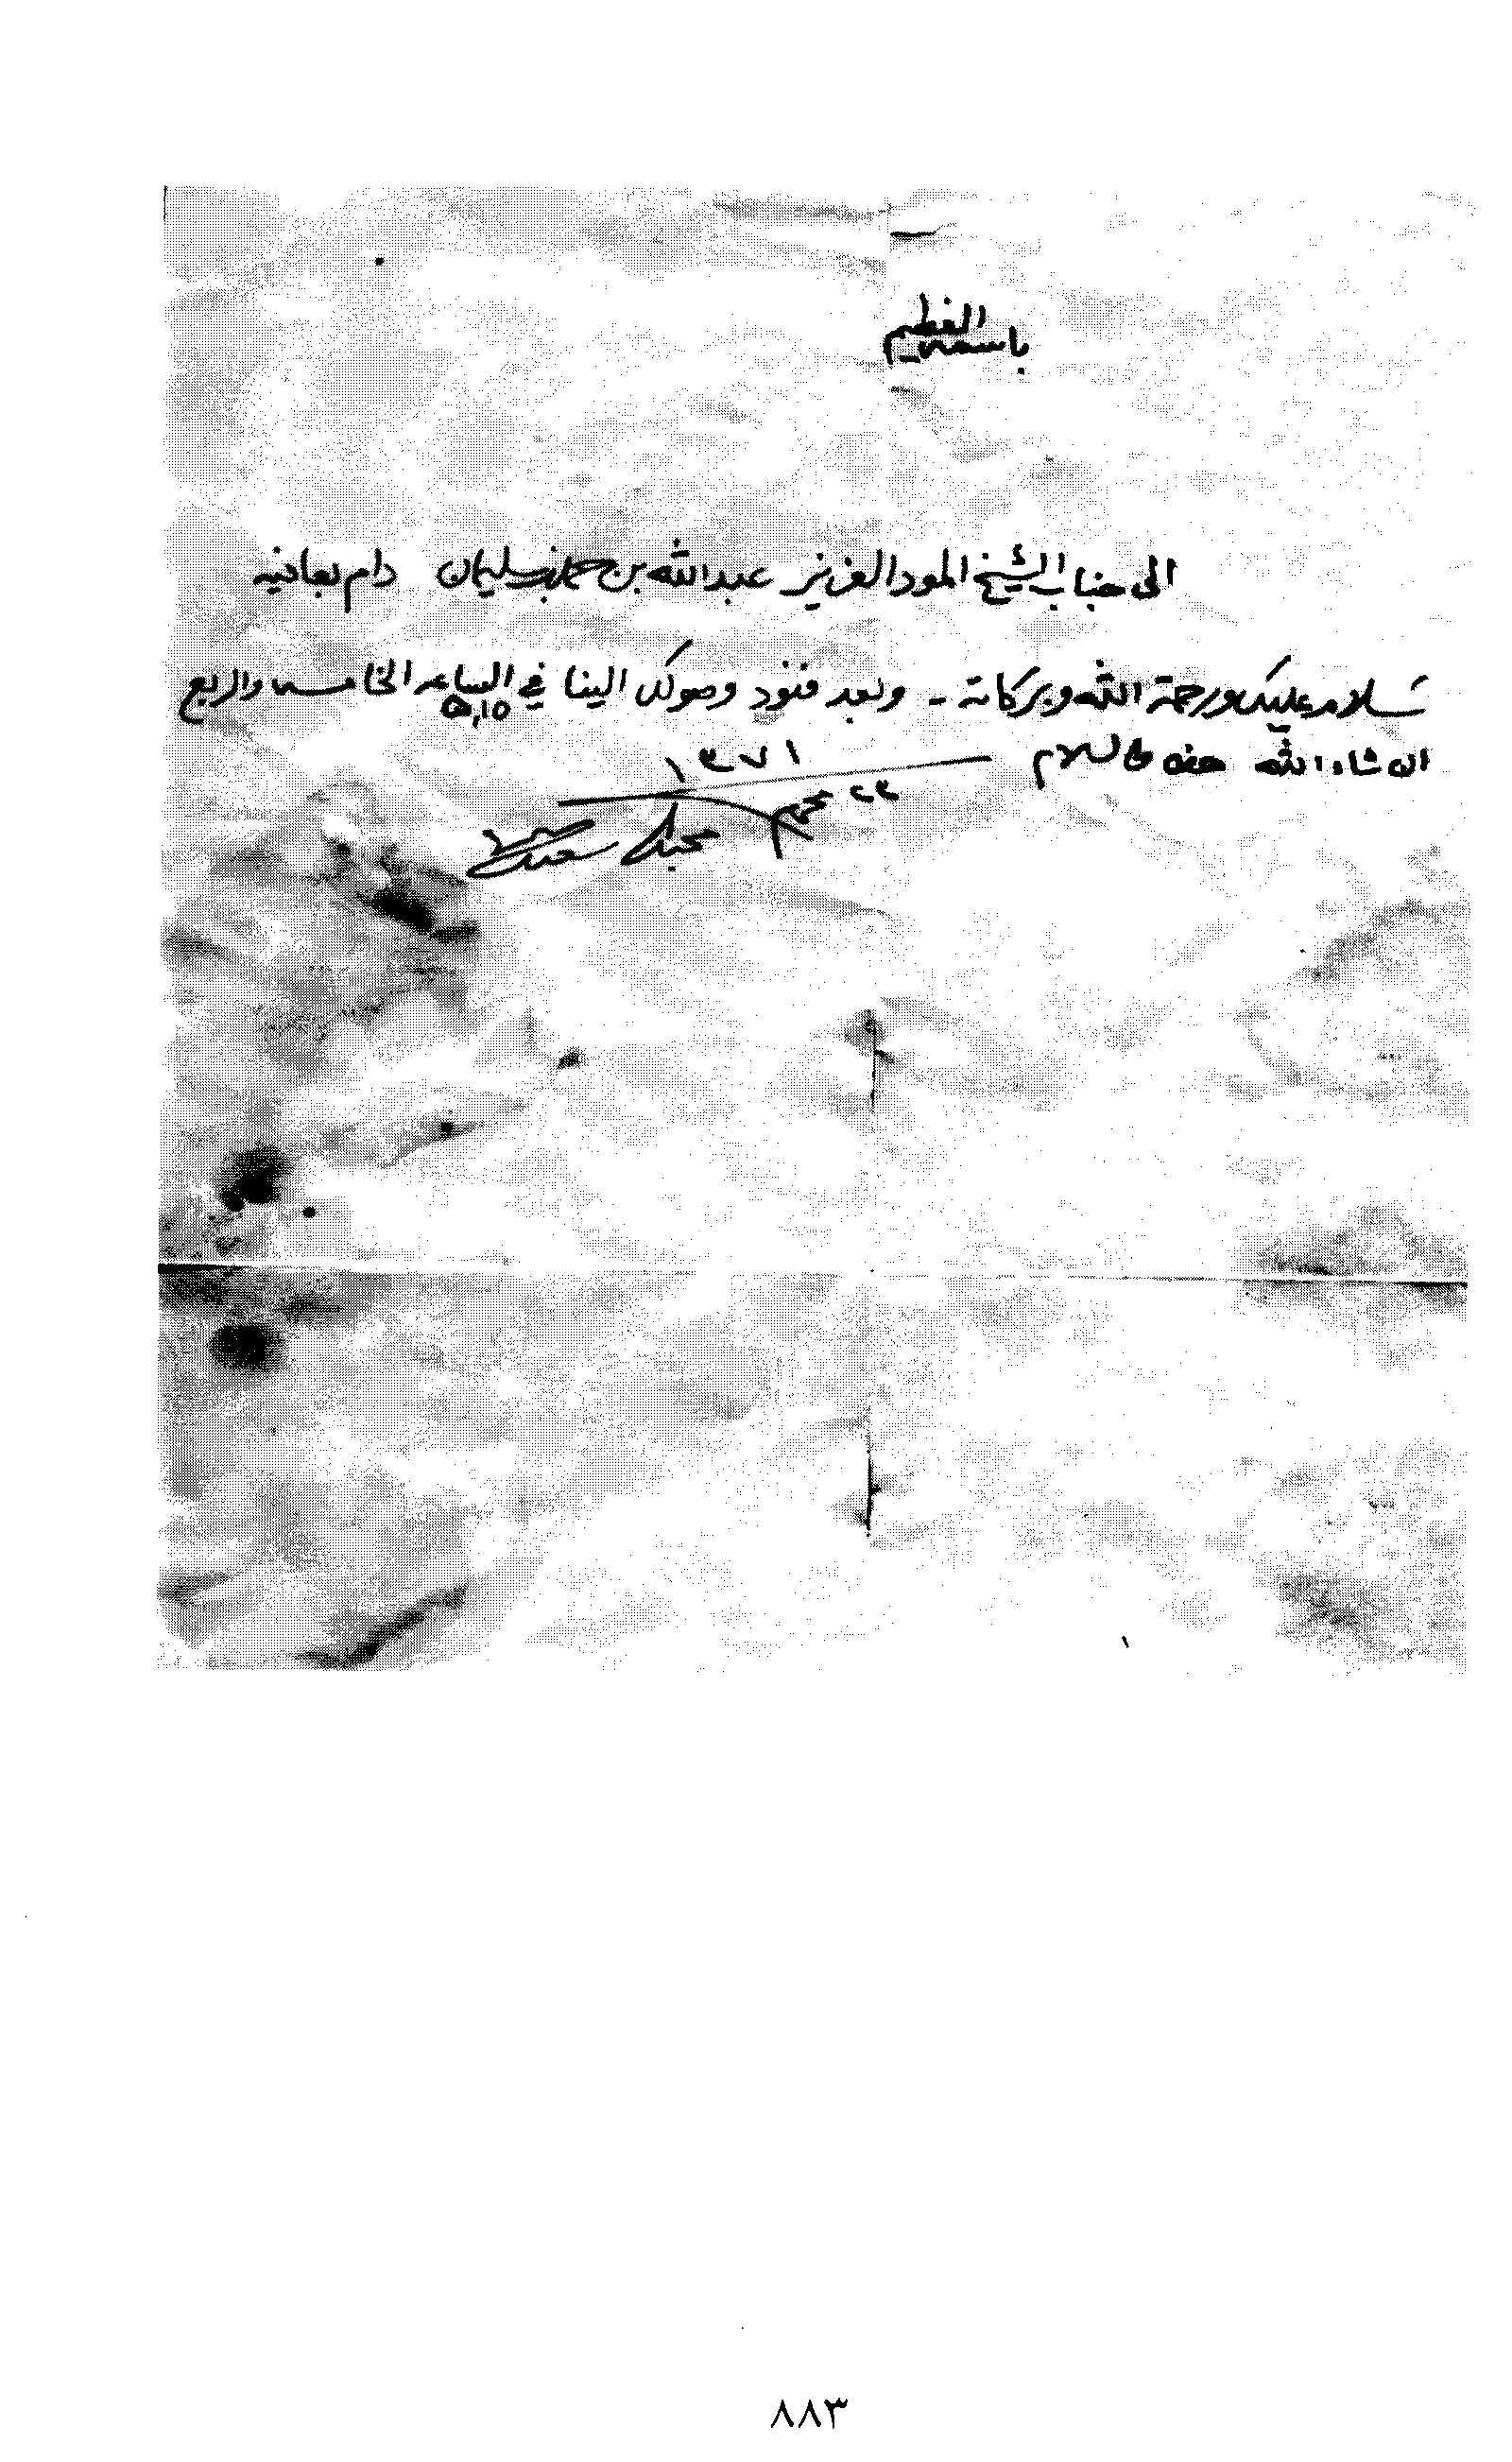 باسمه العظيم
الى جناب الشيخ المود العزيز عبدالله بن حمد بن سليمان دام بعافيه
سلام عليك ورحمة الله وبركاته - وبعد فنود وصولك الينا في الساعه الخامسه والربع
٥,١٥
ان شاء الله هذه والسلام
١٣٧١
٢٣ محرم
محمد سعيد
٨٨٣